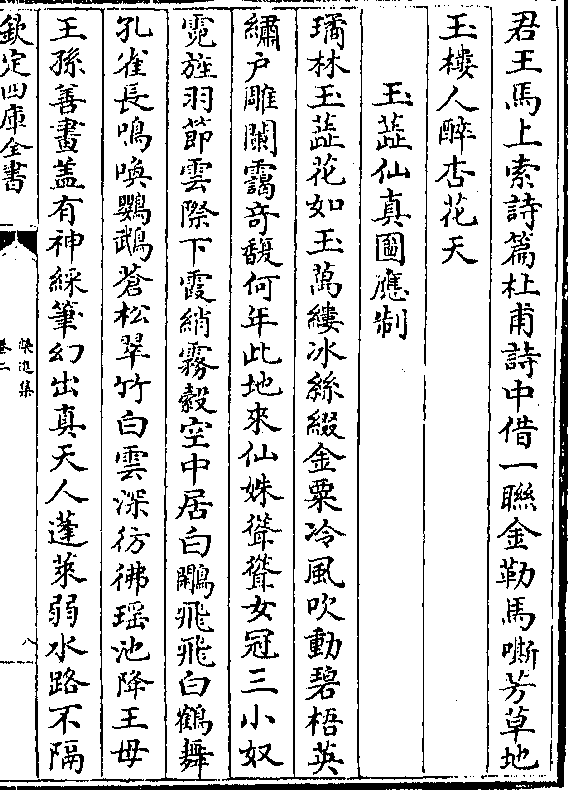 君王馬上索詩篇杜甫詩中借一聯金勒馬嘶芳草地
玉樓人醉杏花天
玉蘂仙真圖應制
璚林玉蘂花如玉萬縷冰絲綴金粟冷風吹動碧梧英
繡户雕闌靄竒馥何年此地來仙姝聳聳女冠三小奴
霓旌羽節雲際下霞綃霧縠空中居白鷴飛飛白鶴舞
孔雀長鳴喚鸚鵡蒼松翠竹白雲深彷彿瑶池降王母
王孫善畫盖有神綵筆幻出真天人蓬萊弱水路不隔
欽定四庫全書
卷二
八